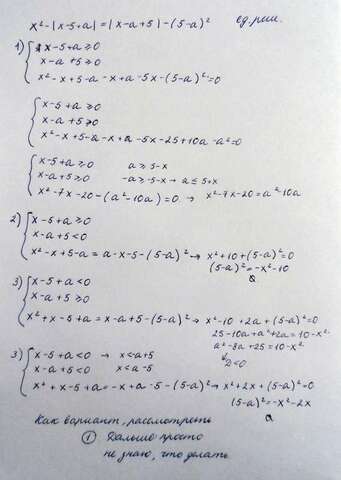 x²-|x-5+a| = |x-a+5|-(5-a)² ед.реш.
1) { x-5+a≥0
x-a+5≥0
x²-x+5-a-x+a-5x-(5-a)²=0
{ x-5+a≥0
x-a+5≥0
x²-x+5-a-x+a-5x-25+10a-a²=0
{ x-5+a≥0 a≥5-x
x-a+5≥0 -a≥-5-x → a≤5+x
x²-7x-20-(a²-10a)=0 → x²-7x-20=a²-10a
2) { x-5+a≥0
x-a+5<0
x²-x+5-a=a-x-5-(5-a)² → x²+10+(5-a)²=0
(5-a)²=-x²-10
3) { x-5+a<0
x-a+5≥0
x²+x-5+a=x-a+5-(5-a)² → x²-10+2a+(5-a)²=0
25-10a+a²+2a=10-x²
a²-8a+25=10-x²
D<0
3) { x-5+a<0 → x<a+5
x-a+5<0 x<a-5
x²+x-5+a=-x+a-5-(5-a)² → x²+2x+(5-a)²=0
(5-a)²=-x²-2x
Как вариант, рассмотреть
① Дальше просто
не знаю, что делать